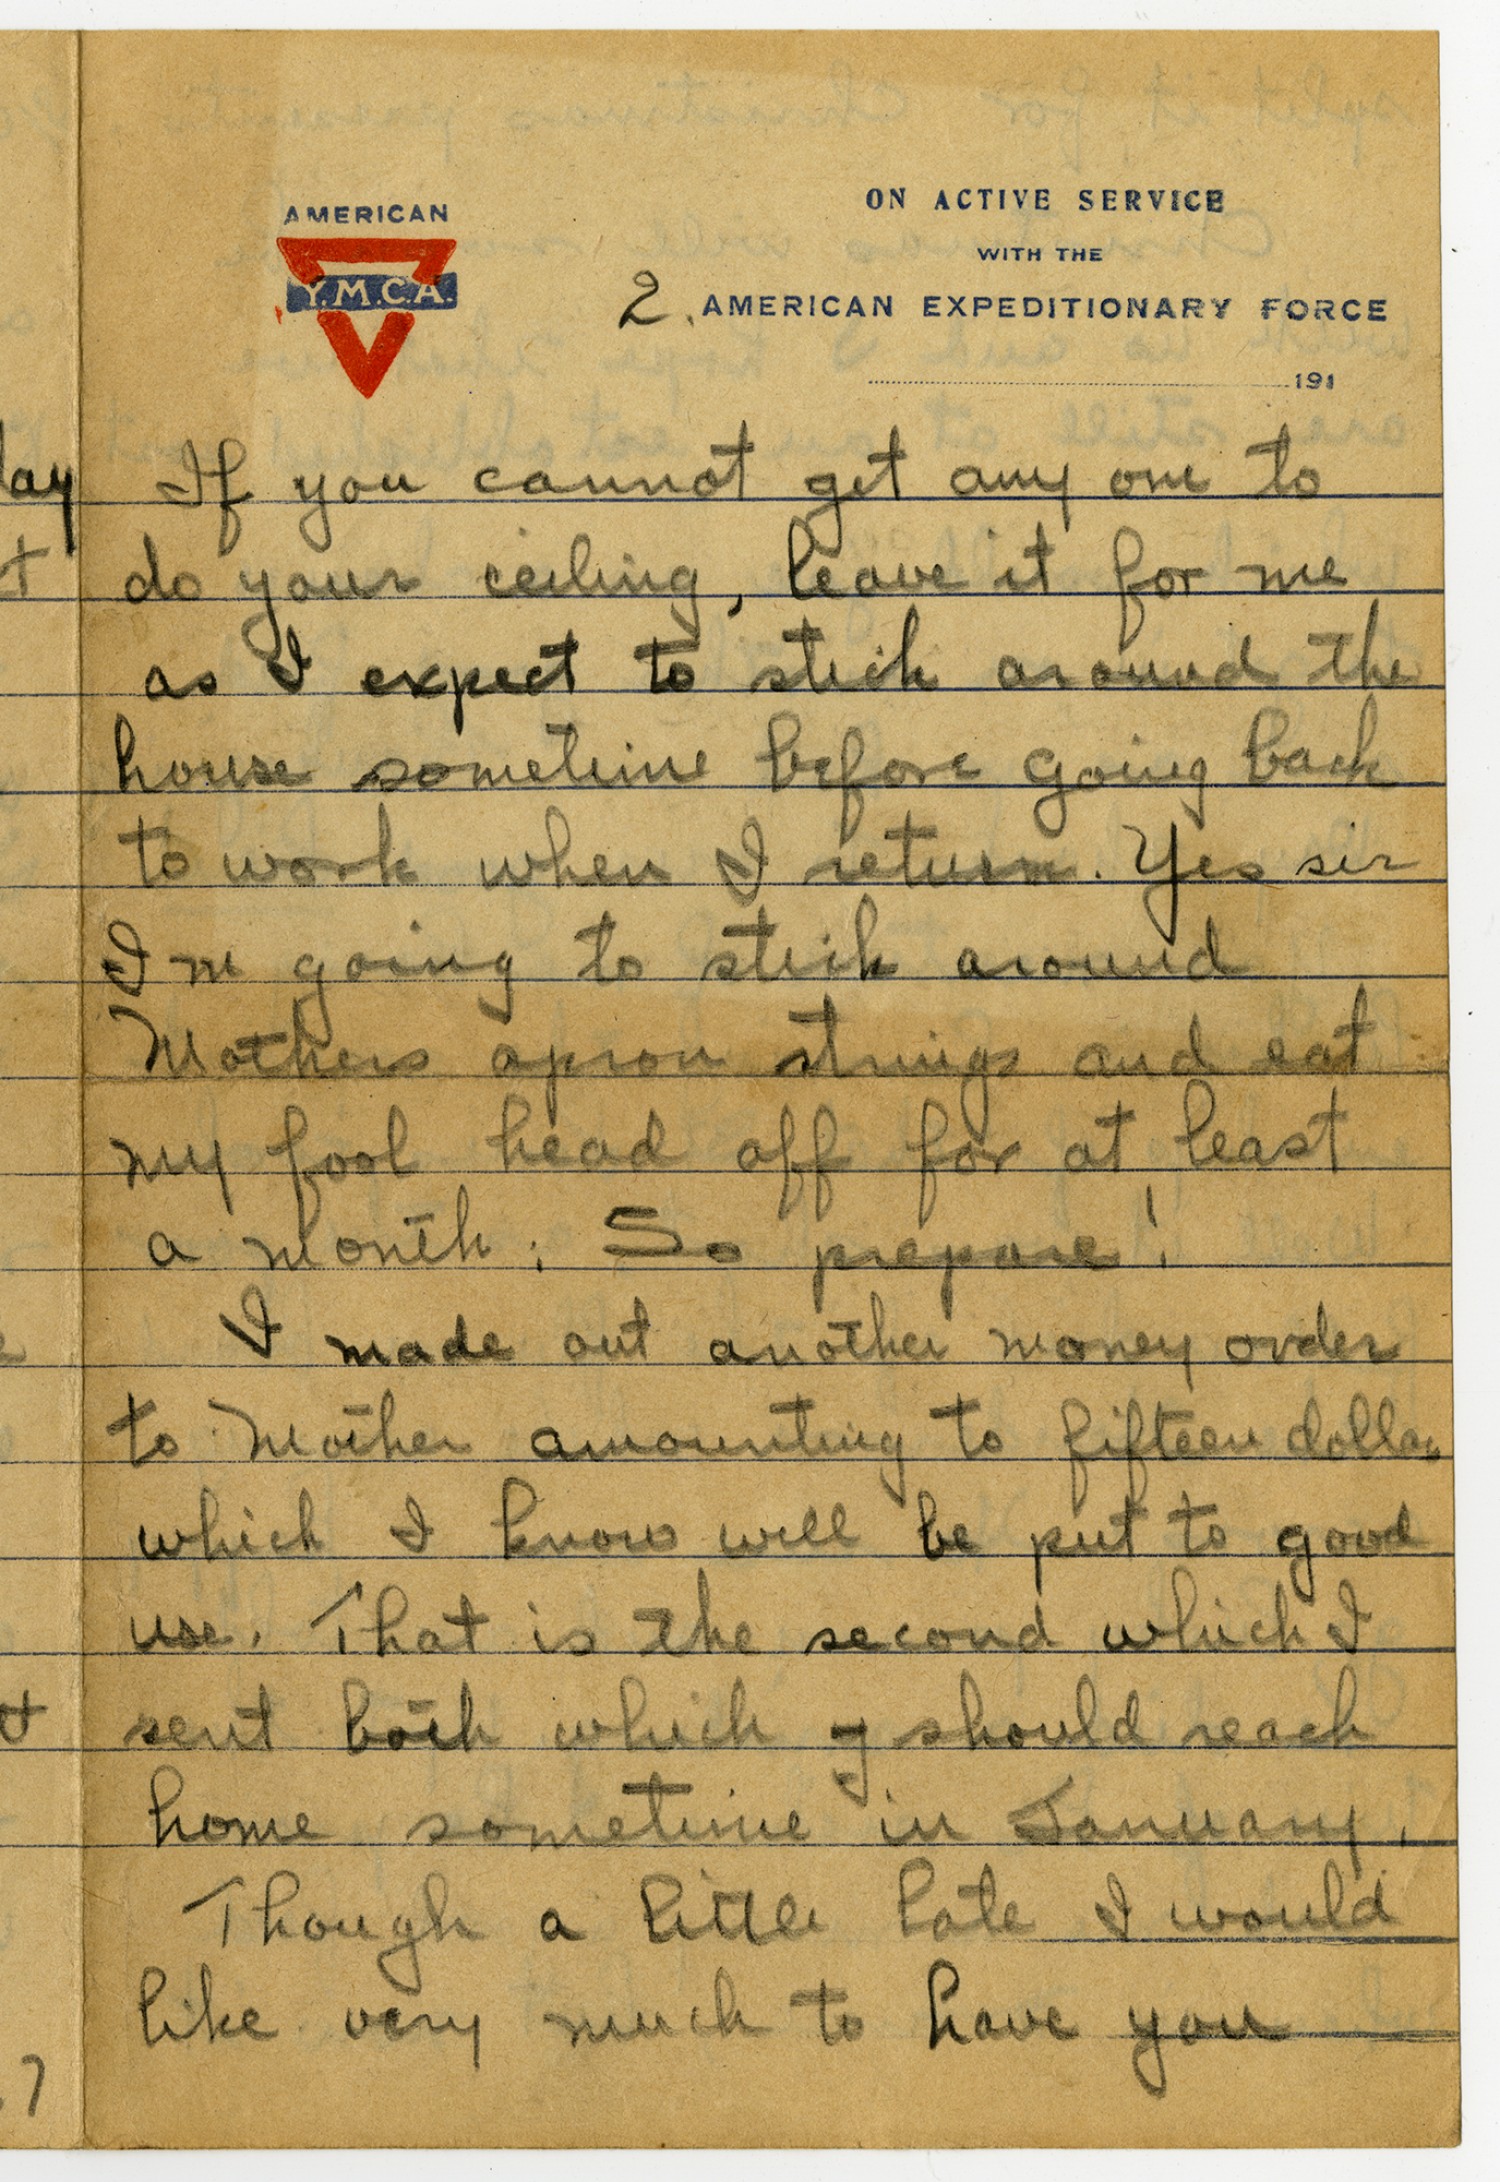 AMERICAN
Y.M.C.A.
ON ACTIVE SERVICE
WITH THE
2. AMERICAN EXPEDITIONARY FORCE
191
If you cannot get any one to
do your ceiling, leave it for me
as I expect to stick around the
house sometime before going back
to work when I return. Yes sir
I'm going to stick around
Mothers apron strings and eat
my fool head off for at least
a month; So prepare!
I made out another money order
to Mother amounting to fifteen dollars
which I know will be put to good
use. That is the second which I
sent both which should reach
home sometime in January.
Though a little late I would
like very much to have you